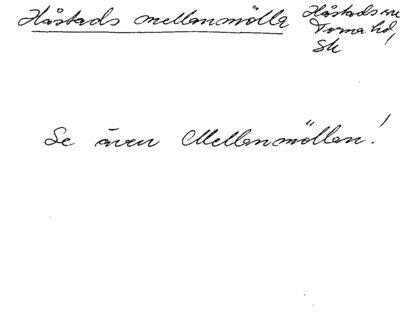 Håstads mellanmölla
Håstads sn
Torna hd,
Sk
Se även Mellanmöllan!